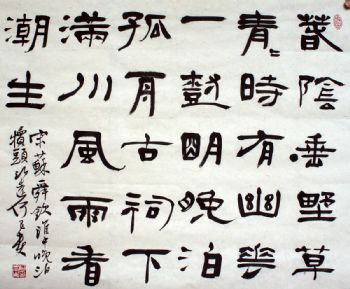 春陰垂野草
青〻時有幽花
一樹明晚泊
孤舟古祠下
滿川風雨看
潮生
宋蘇舜欽淮中晚泊
犢頭